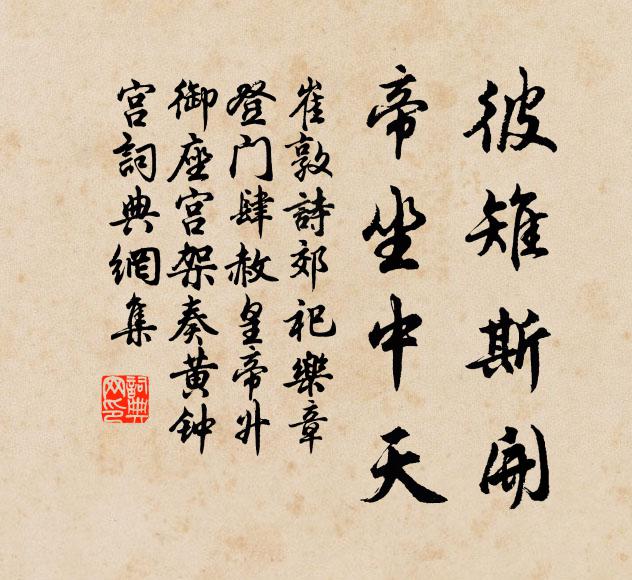 彼雉斯開
帝坐中天
崔敦詩郊祀樂章
登门肆赦皇帝升
御座宫架奏黄钟
宫詞典網集
詞典網印